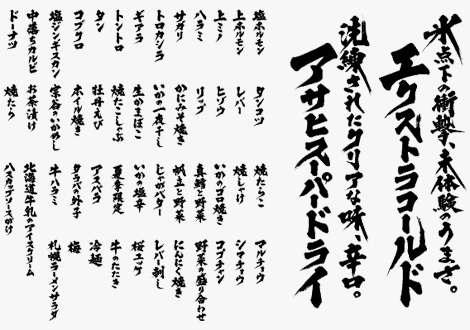 氷点下の衝撃、未体験のうまさ。
エクストラコールド
洗練されたクリアな味、辛口。
アサヒスーパードライ
塩ホルモン
上ホルモン
上ミノ
ハラミ
サガリ
トロカシラ
ギアラ
トントロ
タン
コブクロ
塩ジンギスカン
中落ちカルビ
ドーナツ
タンコツ
レバー
ヒゾウ
リップ
かにみそ焼き
いかの一夜干し
生かまぼこ
焼たこしゃぶ
牡丹えび
ホイル焼き
宗谷のいかめし
お茶漬け
焼たら
焼たらこ
焼しゃけ
いかのゴロ焼き
真鱈と野菜
帆立と野菜
じゃがバター
いかの塩辛
夏季限定
アスパラ
タラバ外子
牛ハラミ
北海道牛乳のアイスクリーム
ハスカップソースがけ
マルチョウ
シマチョウ
コプチャン
野菜の盛り合わせ
にんにく焼き
レバー刺し
桜ユッケ
牛のたたき
冷麺
梅
札幌ラーメンサラダ